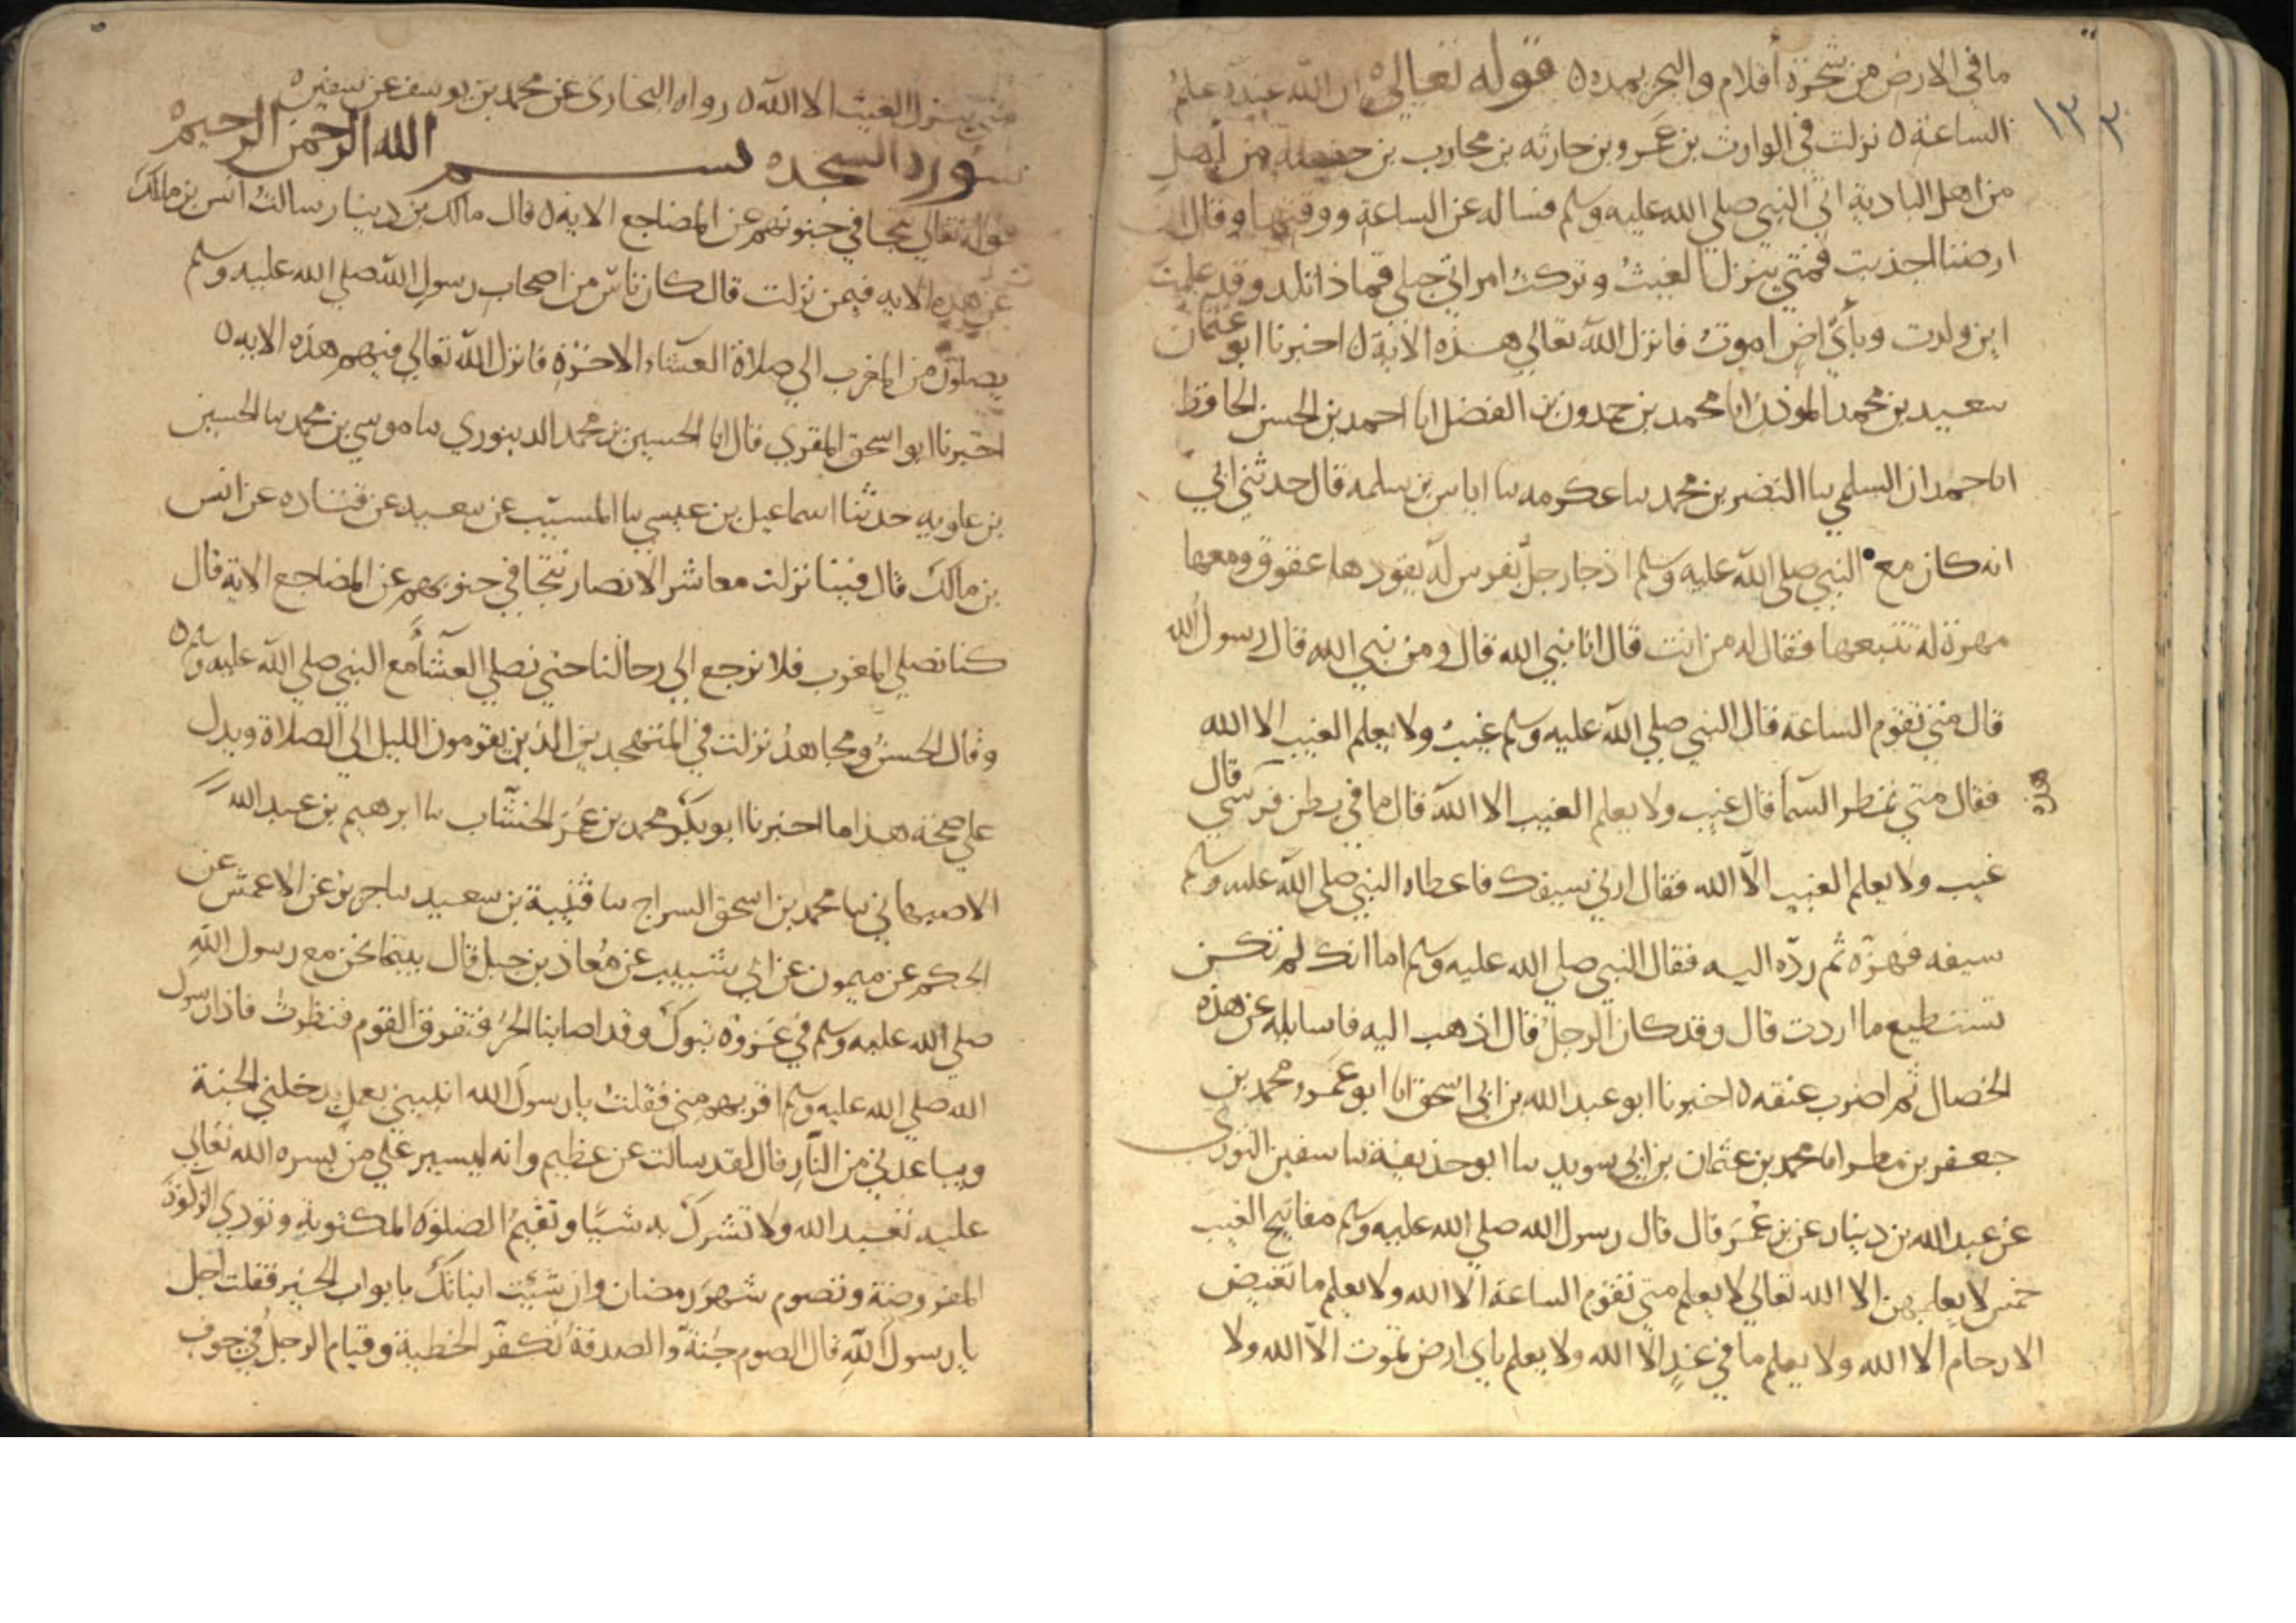 ما في الارض من شجرة أقلام والبحر يمده ٥ قوله تعالى ان الله عنده علم
الساعة ٥ نزلت في الوارث بن عمرو بن حارثه بن محارب بن حفصة من أهل
من اهل البادية اتي النبي صلي الله عليه وسلم فساله عن الساعة ووقتها وقال ان
ارضنا اجدبت فمتي ينزل الغيث وتركت امراتي حبلي فماذا تلد وقد علمت
اين ولدت وبأي ارض اموت فانزل الله تعالي هذه الاية ٥ اخبرنا ابو عثمان
سعيد بن محمد الموذن انا محمد بن حمدون بن الفضل انا احمد بن الحسن الحافظ
انا حمدان السلمي نا النضر بن محمد نا عكرمه نا اياس بن سلمه قال حدثني ابي
انه كان مع النبي صلي الله عليه وسلم اذ جا رجل بفرس له يقودها عقوق ومعها
مهرة له تتبعها فقال له من انت قال انا نبي الله قال ومن نبي الله قال رسول الله
قال متي تقوم الساعة قال النبي صلي الله عليه وسلم غيب ولا يعلم الغيب الا الله
فقال متي تمطر السما قال غيب ولا يعلم الغيب الا الله قال ما في بطن فرسي قال
غيب ولا يعلم الغيب الا الله فقال ارني سيفك فاعطاه النبي صلي الله عليه وسلم
سيفه فهزه ثم رده اليه فقال النبي صلي الله عليه وسلم اما انك لم تكن
تستطيع ما اردت قال وقد كان الرجل قال اذهب اليه فاسايله عن هذه
الخصال ثم اضرب عنقه ٥ اخبرنا ابو عبد الله بن ابي اسحق انا ابو عمرو محمد بن
جعفر بن مطر انا محمد بن عثمان بن ابي سويد نا ابو حذيفة نا سفين الثوري
عن عبد الله بن دينار عن بن عمر قال قال رسول الله صلي الله عليه وسلم مفاتيح الغيب
خمس لا يعلمهن الا الله تعالي لا يعلم متي تقوم الساعة الا الله ولا يعلم ما تغيض
الارحام الا الله ولا يعلم ما في غد الا الله ولا يعلم باي ارض تموت الا الله ولا
متي ينزل الغيث الا الله ٥ رواه البخاري عن محمد بن يوسف عن سفين ٥
سورة السجده بسم الله الرحمن الرحيم
قوله تعالي تتجافي جنوبهم عن المضاجع الايه ٥ قال مالك بن دينار سالت انس بن مالك
عن هذه الايه فيمن نزلت قال كان ناس من اصحاب رسول الله صلي الله عليه وسلم
يصلون من المغرب الي صلاة العشاء الاخرة فانزل الله تعالي فيهم هذه الايه ٥
اخبرنا ابو اسحق المقري قال انا الحسين بن محمد الدينوري نا موسي بن محمد نا الحسين
بن علويه حدثنا اسماعيل بن عيسي نا المسيب عن سعيد عن قتاده عن انس
بن مالك قال فينا نزلت معاشر الانصار تتجافي جنوبهم عن المضاجع الاية قال
كنا نصلي المغرب فلا نرجع الي رحالنا حتي نصلي العشآء مع النبي صلي الله عليه وسلم ٥
وقال الحسن ومجاهد نزلت في المتهجدين الذين يقومون الليل الي الصلاة ويدل
علي صحة هذا ما اخبرنا ابو بكر محمد بن عمر الخشاب نا ابرهيم بن عبد الله
الاصبهاني نا محمد بن اسحق السراج نا قتيبة بن سعيد نا جرير عن الاعمش عن
الحكم عن ميمون عن ابي شبيب عن معاذ بن جبل قال بينما نحن مع رسول الله
صلي الله عليه وسلم في غزوة تبوك وقد اصابنا الحر فتفرق القوم فنظرت فاذا رسول
الله صلي الله عليه وسلم اقربهم مني فقلت يا رسول الله انبيني بعمل يدخلني الجنة
ويباعدني من النار قال لقد سالت عن عظيم وانه ليسير علي من يسره الله تعالي
عليه تعبد الله ولا تشرك به شيًا وتقيم الصلوة المكتوبة وتودي الزكوة
المفروضة وتصوم شهر رمضان وان شيت انباتك بابواب الخير فقلت اجل
يا رسول الله قال الصوم جنة والصدقة تكفر الخطية وقيام الرجل في جوف